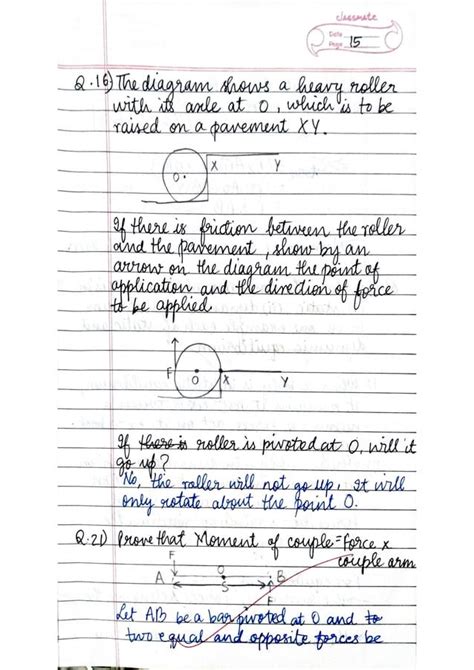 classmate
Date
Page 15
Q.16) The diagram shows a heavy roller
with its axle at O, which is to be
raised on a pavement XY.
X Y
O
If there is friction between the roller
and the pavement, show by an
arrow on the diagram the point of
application and the direction of force
to be applied
F O X Y
If there is roller is pivoted at O, will it
go up?
No, the roller will not go up. It will
only rotate about the point O.
Q.21) Prove that Moment of couple = Force x
couple arm
F
A O B
S
F
Let AB be a bar pivoted at O and to
two equal and opposite forces be